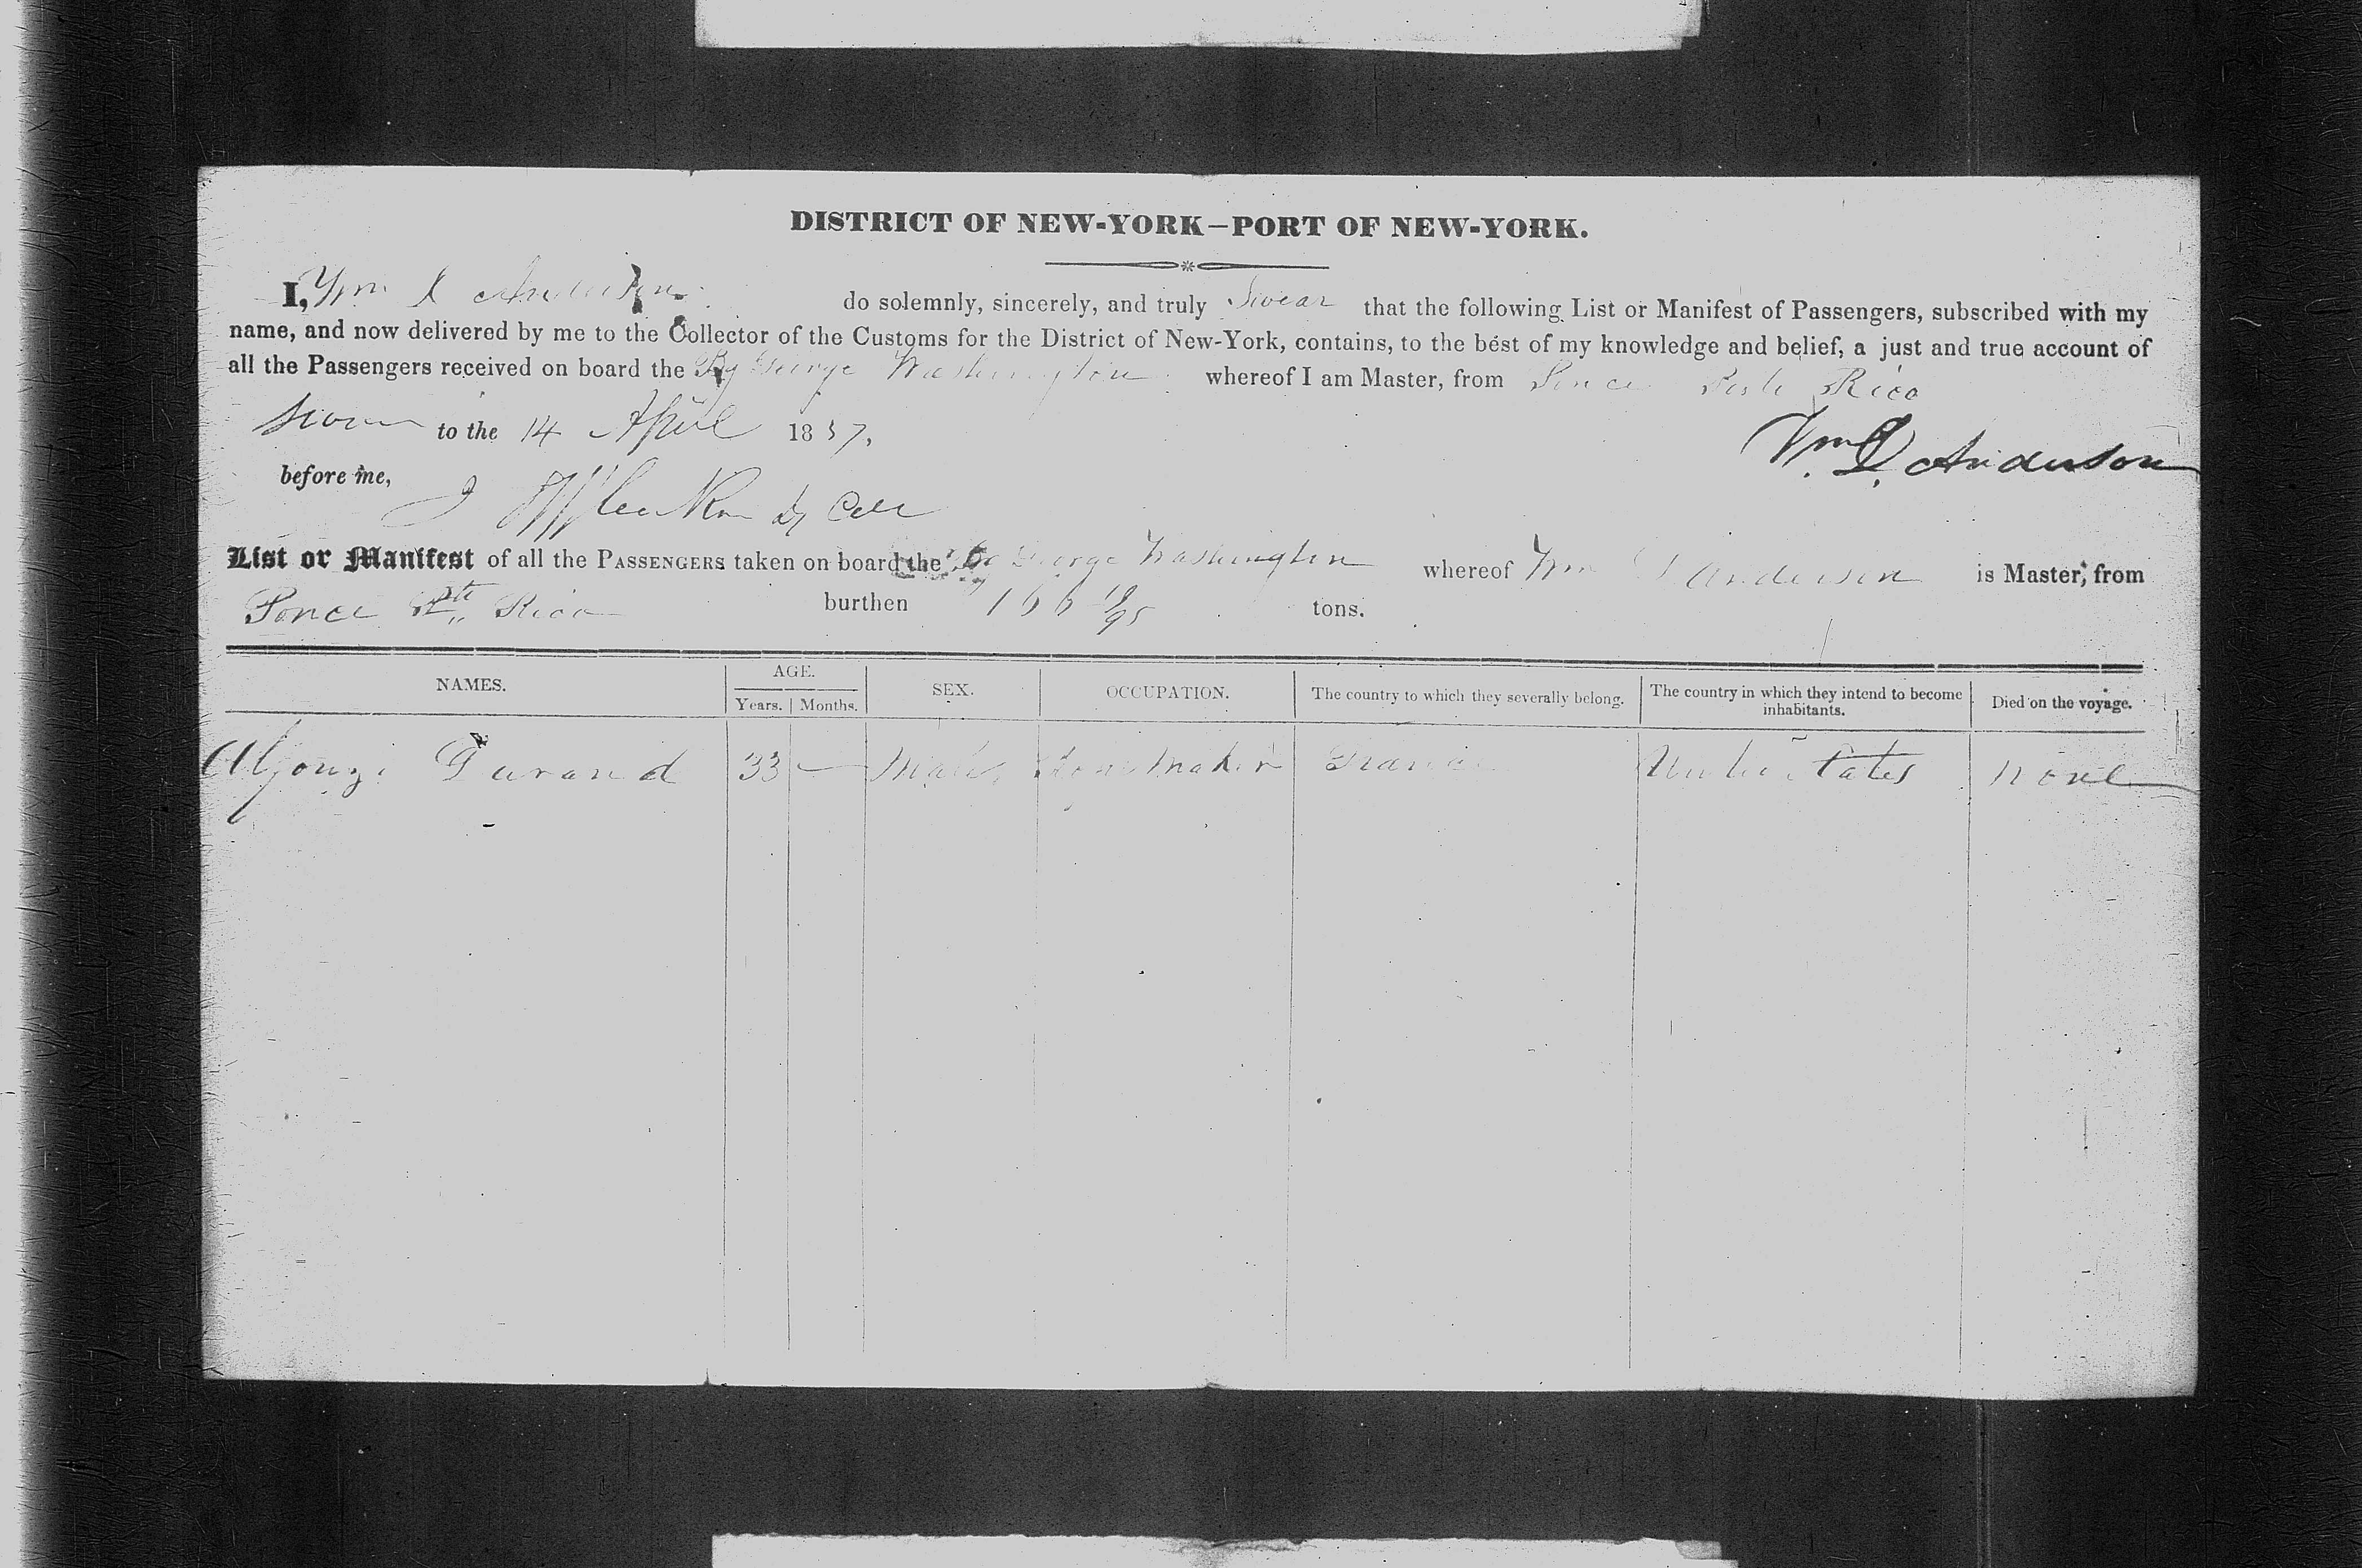 DISTRICT OF NEW-YORK—PORT OF NEW-YORK.
I, Wm L Anderson do solemnly, sincerely, and truly Swear that the following List or Manifest of Passengers, subscribed with my
name, and now delivered by me to the Collector of the Customs for the District of New-York, contains, to the best of my knowledge and belief, a just and true account of
all the Passengers received on board the Brg George Washington whereof I am Master, from Ponce Porto Rico
Sworn to the 14 April 1837.
Wm L. Anderson
before me,
Dy Coll
List or Manifest of all the PASSENGERS taken on board the George Washington whereof Wm L Anderson is Master, from
Ponce Pto Rico burthen 166 tons.
NAMES. AGE. SEX. OCCUPATION. The country to which they severally belong. The country in which they intend to become inhabitants. Died on the voyage.
Years. Months.
Durand 33 — Male maker France United States none